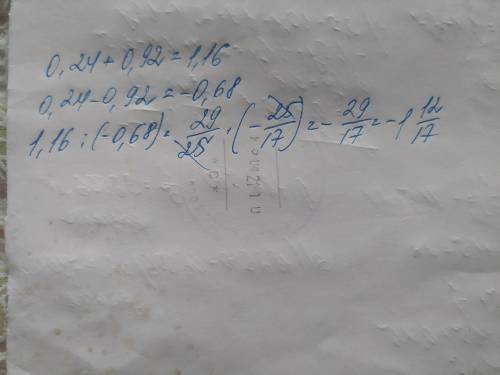 0,24+0,92=1,16
0,24-0,92=-0,68
1,16:(-0,68)=29/25·(-25/17)=-29/17=-1 12/17